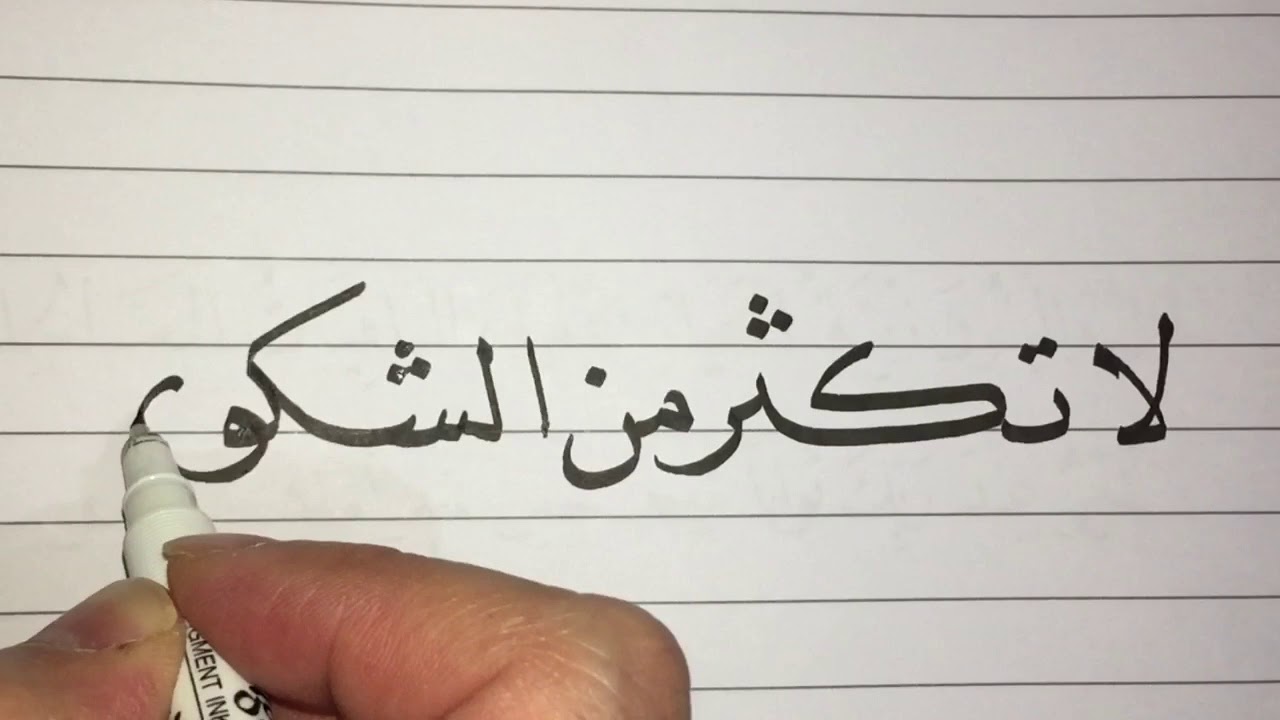 لا تكثر من الشكوى
GMENT INK